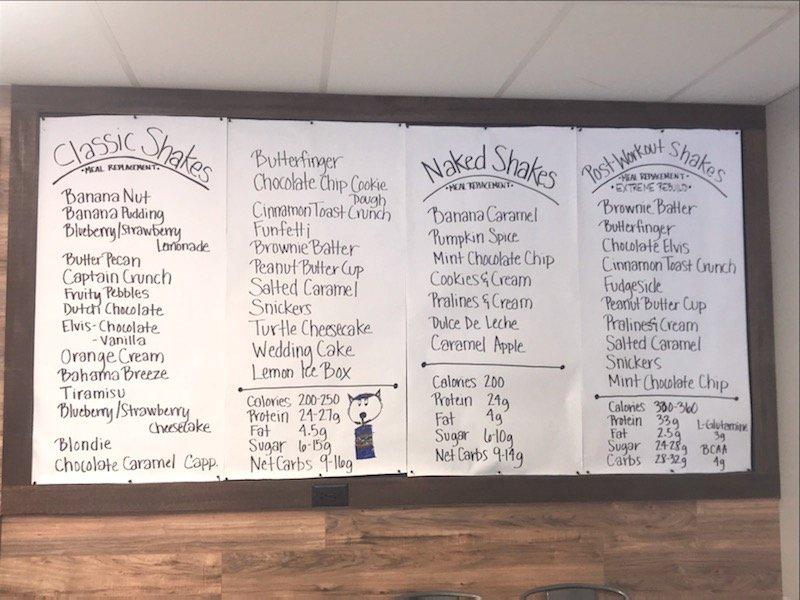 Classic Shakes
•MEAL REPLACEMENT•
Banana Nut
Banana Pudding
Blueberry/Strawberry
Lemonade
Butter Pecan
Captain Crunch
Fruity Pebbles
Dutch Chocolate
Elvis-Chocolate
-Vanilla
Orange Cream
Bahama Breeze
Tiramisu
Blueberry/Strawberry
Cheesecake
Blondie
Chocolate Caramel Capp.
Butterfinger
Chocolate Chip Cookie
Dough
Cinnamon Toast Crunch
Funfetti
Brownie Batter
Peanut Butter Cup
Salted Caramel
Snickers
Turtle Cheesecake
Wedding Cake
Lemon Ice Box
Calories 200-250
Protein 24-27g
Fat 4.5g
Sugar 6-15g
Net Carbs 9-16g
Naked Shakes
•MEAL REPLACEMENT•
Banana Caramel
Pumpkin Spice
Mint Chocolate Chip
Cookies & Cream
Pralines & Cream
Dulce De Leche
Caramel Apple
Calories 200
Protein 24g
Fat 4g
Sugar 6-10g
Net Carbs 9-14g
Post-Workout Shakes
•MEAL REPLACEMENT•
•EXTREME REBUILD•
Brownie Batter
Butterfinger
Chocolate Elvis
Cinnamon Toast Crunch
Fudgesicle
Peanut Butter Cup
Pralines & Cream
Salted Caramel
Snickers
Mint Chocolate Chip
Calories 300-360
Protein 33g
Fat 2.5g
Sugar 24-28g
Carbs 28-32g
L-Glutamine
3g
BCAA
4g